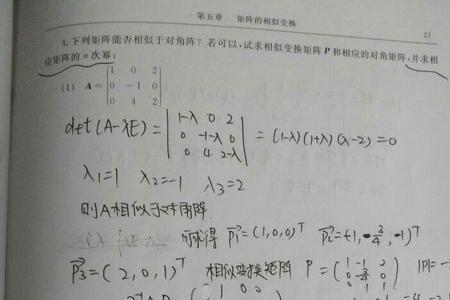 第五章 矩阵的相似变换 21
4. 下列矩阵能否相似于对角阵? 若可以,试求相似变换矩阵 P 和相应的对角矩阵,并求相
应矩阵的 n 次幂:
(1) A = |1 0 2|
|0 -1 0|
|0 4 2|
det(A-λE) = |1-λ 0 2|
|0 -1-λ 0| = (1-λ)(1+λ)(λ-2) = 0
|0 4 2-λ|
λ1=1 λ2=-1 λ3=2
则A相似于对角阵.
可求得 P1=(1,0,0)ᵀ
P3=(2,0,1)ᵀ 相似变换矩阵 P=